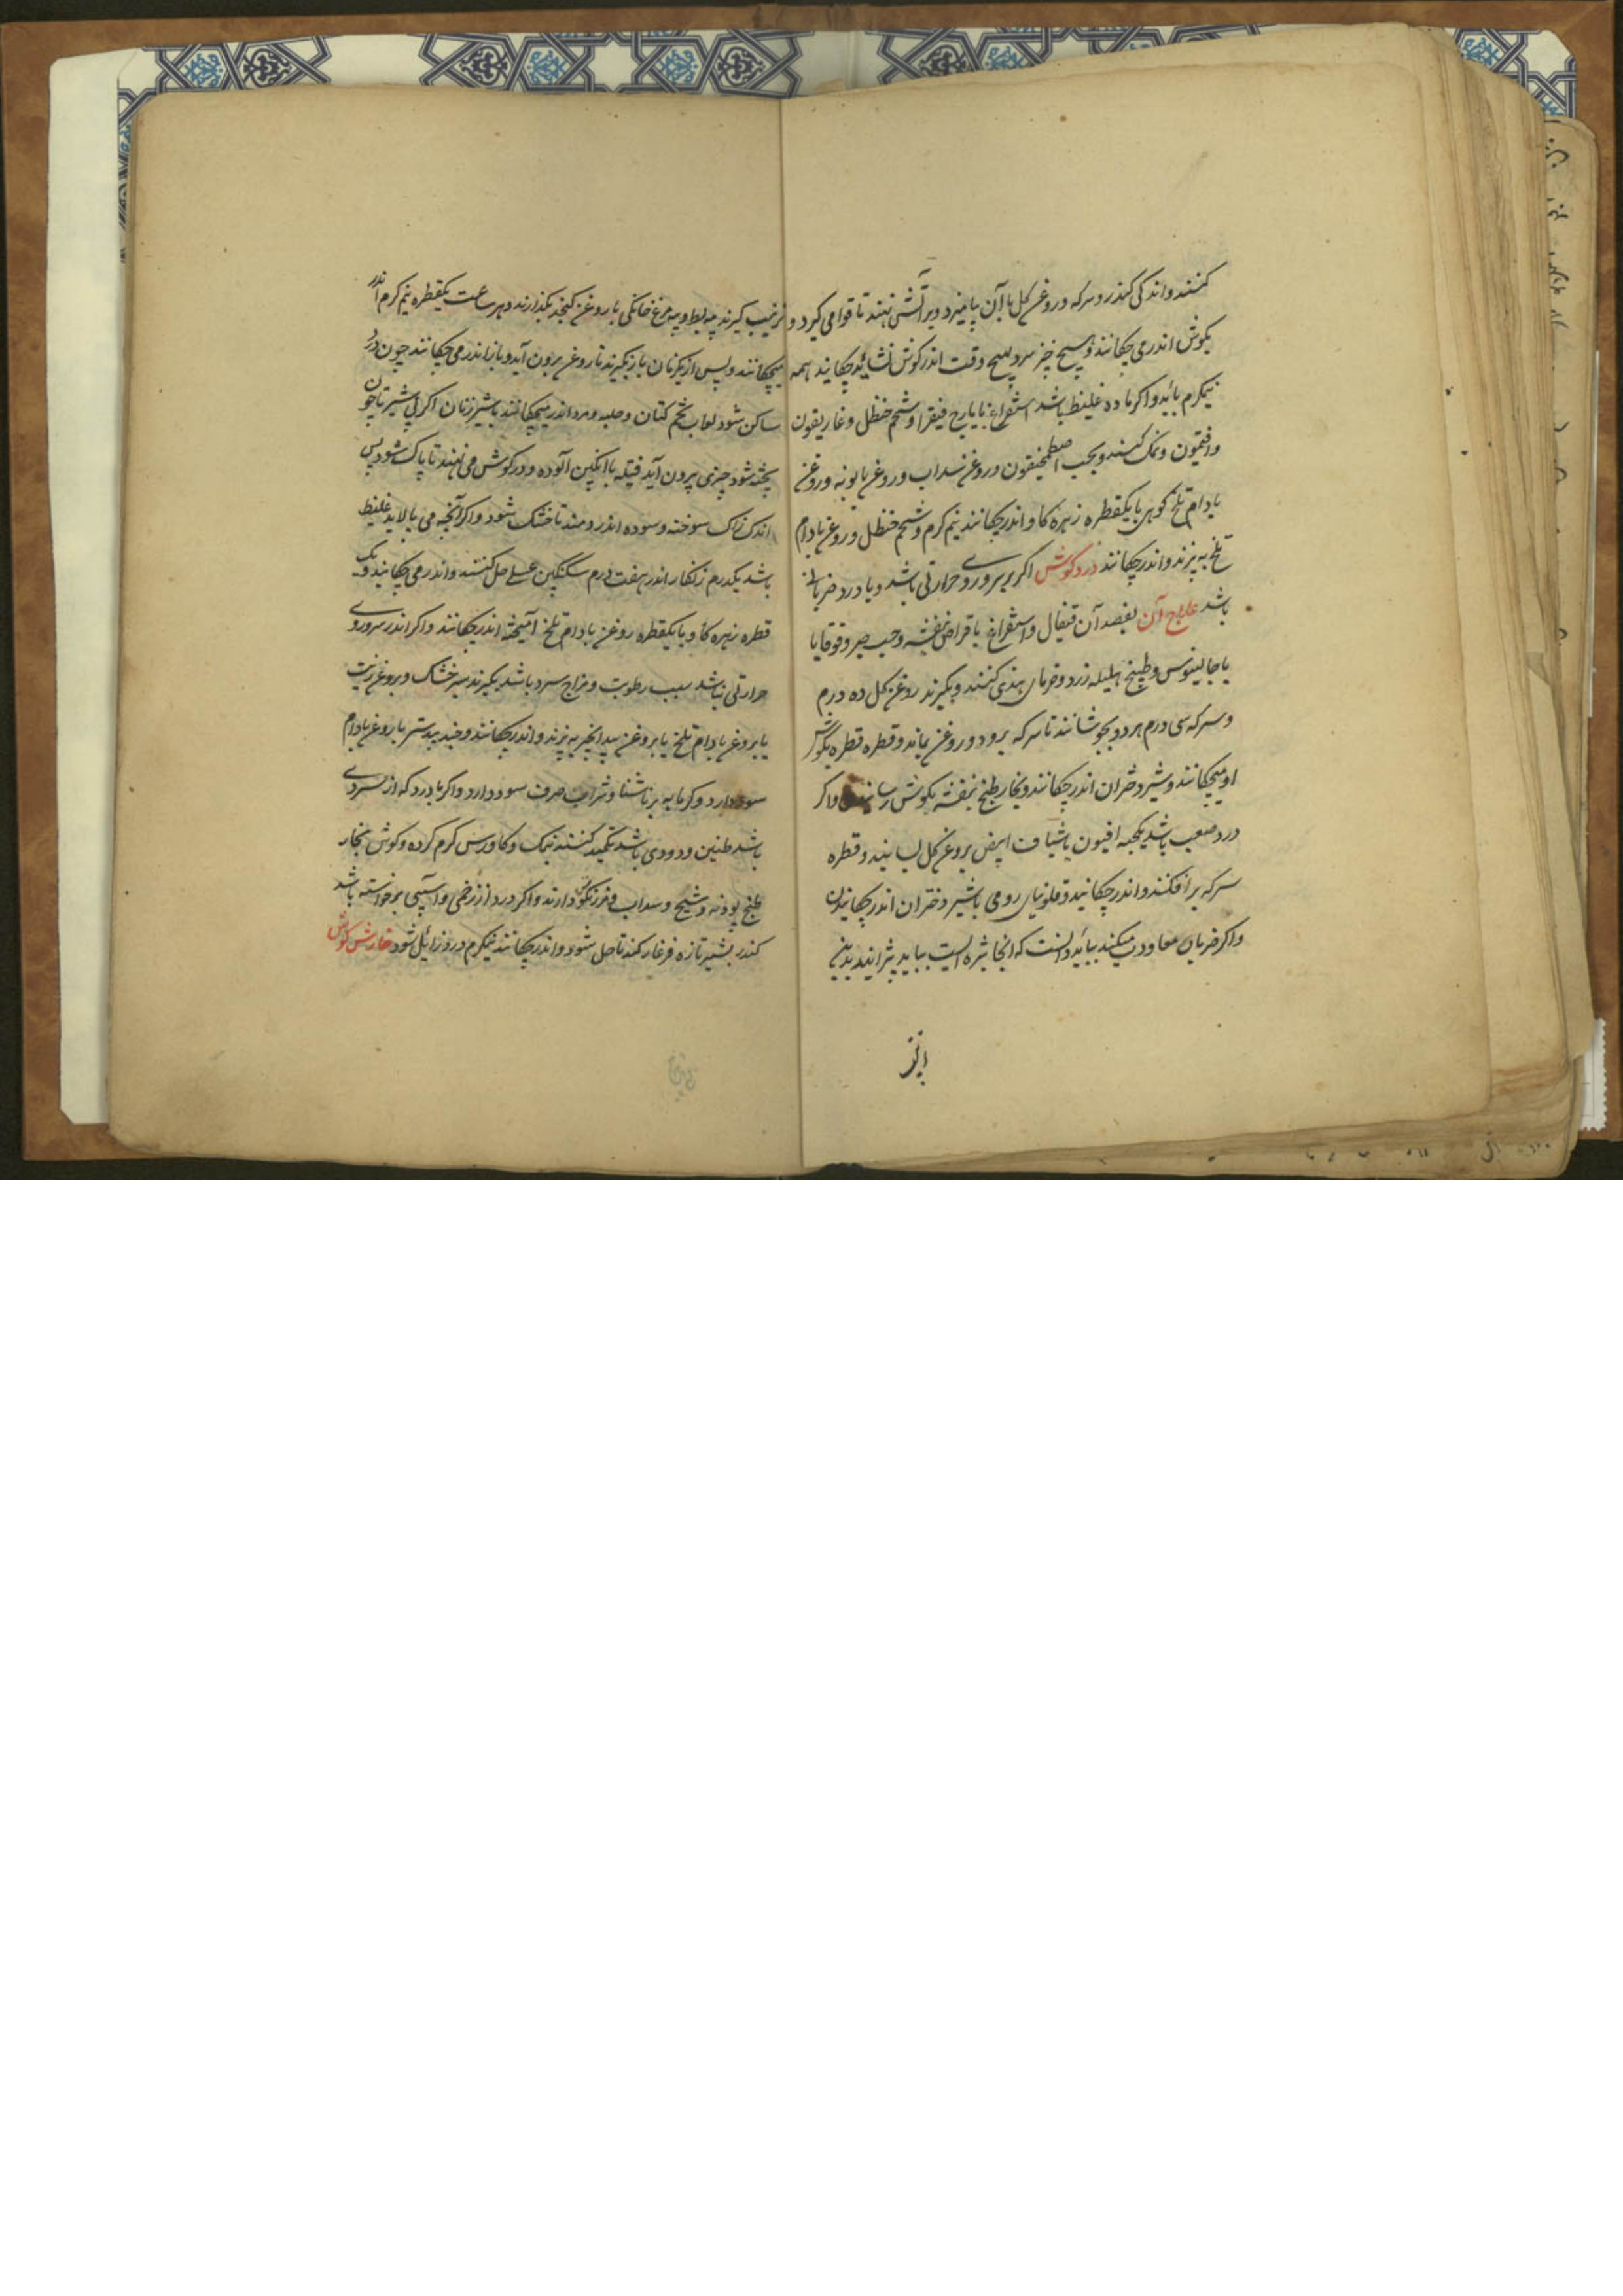 کنند و اندکی کندر و سرکه و روغن کل با آن بیامیزد و بر آتش نهند تا قوامی کیرد و
بکوش اندر می چکانند و هیچ چیز سرد هیچ وقت اندر کوش نشاید چکانید همه
نیمکرم باید و اکر ماده غلیظ باشد استفراغ بایارج فیقرا و شحم حنظل و غاریقون
و افتیمون و نمک کنند و بحب اصطمخیقون و روغن سداب و روغن بابونه و روغن
بادام تلخ کوهی با یکقطره زهره کاو اندر چکانند نیم کرم و شحم حنظل و روغن بادام
تلخ به پزند و اندر چکانند درد کوش اکر بر سر و روی حرارتی باشد و با درد ضربانی
باشد علاج آن بفصد آن قیفال و استفراغ باقراص بنفشه و حب صبر و قوقایا
یا جالینوس و طبیخ هلیله زرد و خرمای هندی کنند و بکیرند روغن کل ده درم
و سرکه سی درم هر دو بجوشانند تا سرکه برود و روغن بماند و قطره قطره بکوش
او میچکانند و شیر دختران اندر چکانند و بخار طبیخ بنفشه بکوش رسانند و اکر
درد صعب باشد یکحبه افیون یا شیاف ابیض بروغن کل بسایند و قطره
سرکه بر افکنند و اندر چکانند و فلونیای رومی با شیر دختران اندر چکانیدن
و اکر ضربان معاودت میکند بباید دانست که انجا بثره ایست بباید پزانید بدین
ترتیب کیرند پیه بط و پیه مرغ خانکی با روغن کنجد بکدازند و هر ساعت یکقطره نیم کرم اندر
میچکانند و پس از یکزمان باز بکیرند تا روغن برون آید و باز اندر می چکانند چون درد
ساکن شود لعاب تخم کتان و حلبه و مرو اندر میچکانند با شیر زنان اکر پی شیر تا چون
پخته شود چیزی بیرون آید فتیله با انکبین آلوده و در کوش می نهند تا پاک شود پس
اندک زاک سوخته و سوده اندر دمند تا خشک شود و اکر آنچه می پالاید غلیظ
باشد یکدرم زنکار اندر هفت درم سکنکبین عسلی حل کنند و اندر می چکانند و یک
قطره زهره کاو با یکقطره روغن بادام تلخ آمیخته اندر چکانند و اکر اندر سر و روی
حرارتی نباشد سبب رطوبت و مزاج سرد باشد بکیرند سیر خشک و بروغن زیت
یا بروغن بادام تلخ یا بروغن بید انجیر به پزند و اندر چکانند و جند بیدستر با روغن بادام
سود دارد و کرمابه بر ناشتا و شراب صرف سود دارد و اکر با درد که از سردی
باشد طنین و دودی باشد تکمید کنند نمک و کاورس کرم کرده و کوش بخار
طبیخ پودنه و شیح و سداب و مرزنکوش دارند و اکر درد از زخمی و آسیبی برخواسته باشد
کندر بشیر تازه فرغار کند تا حل شود و اندر چکانند نیمکرم درد زائل شود خارش کوش